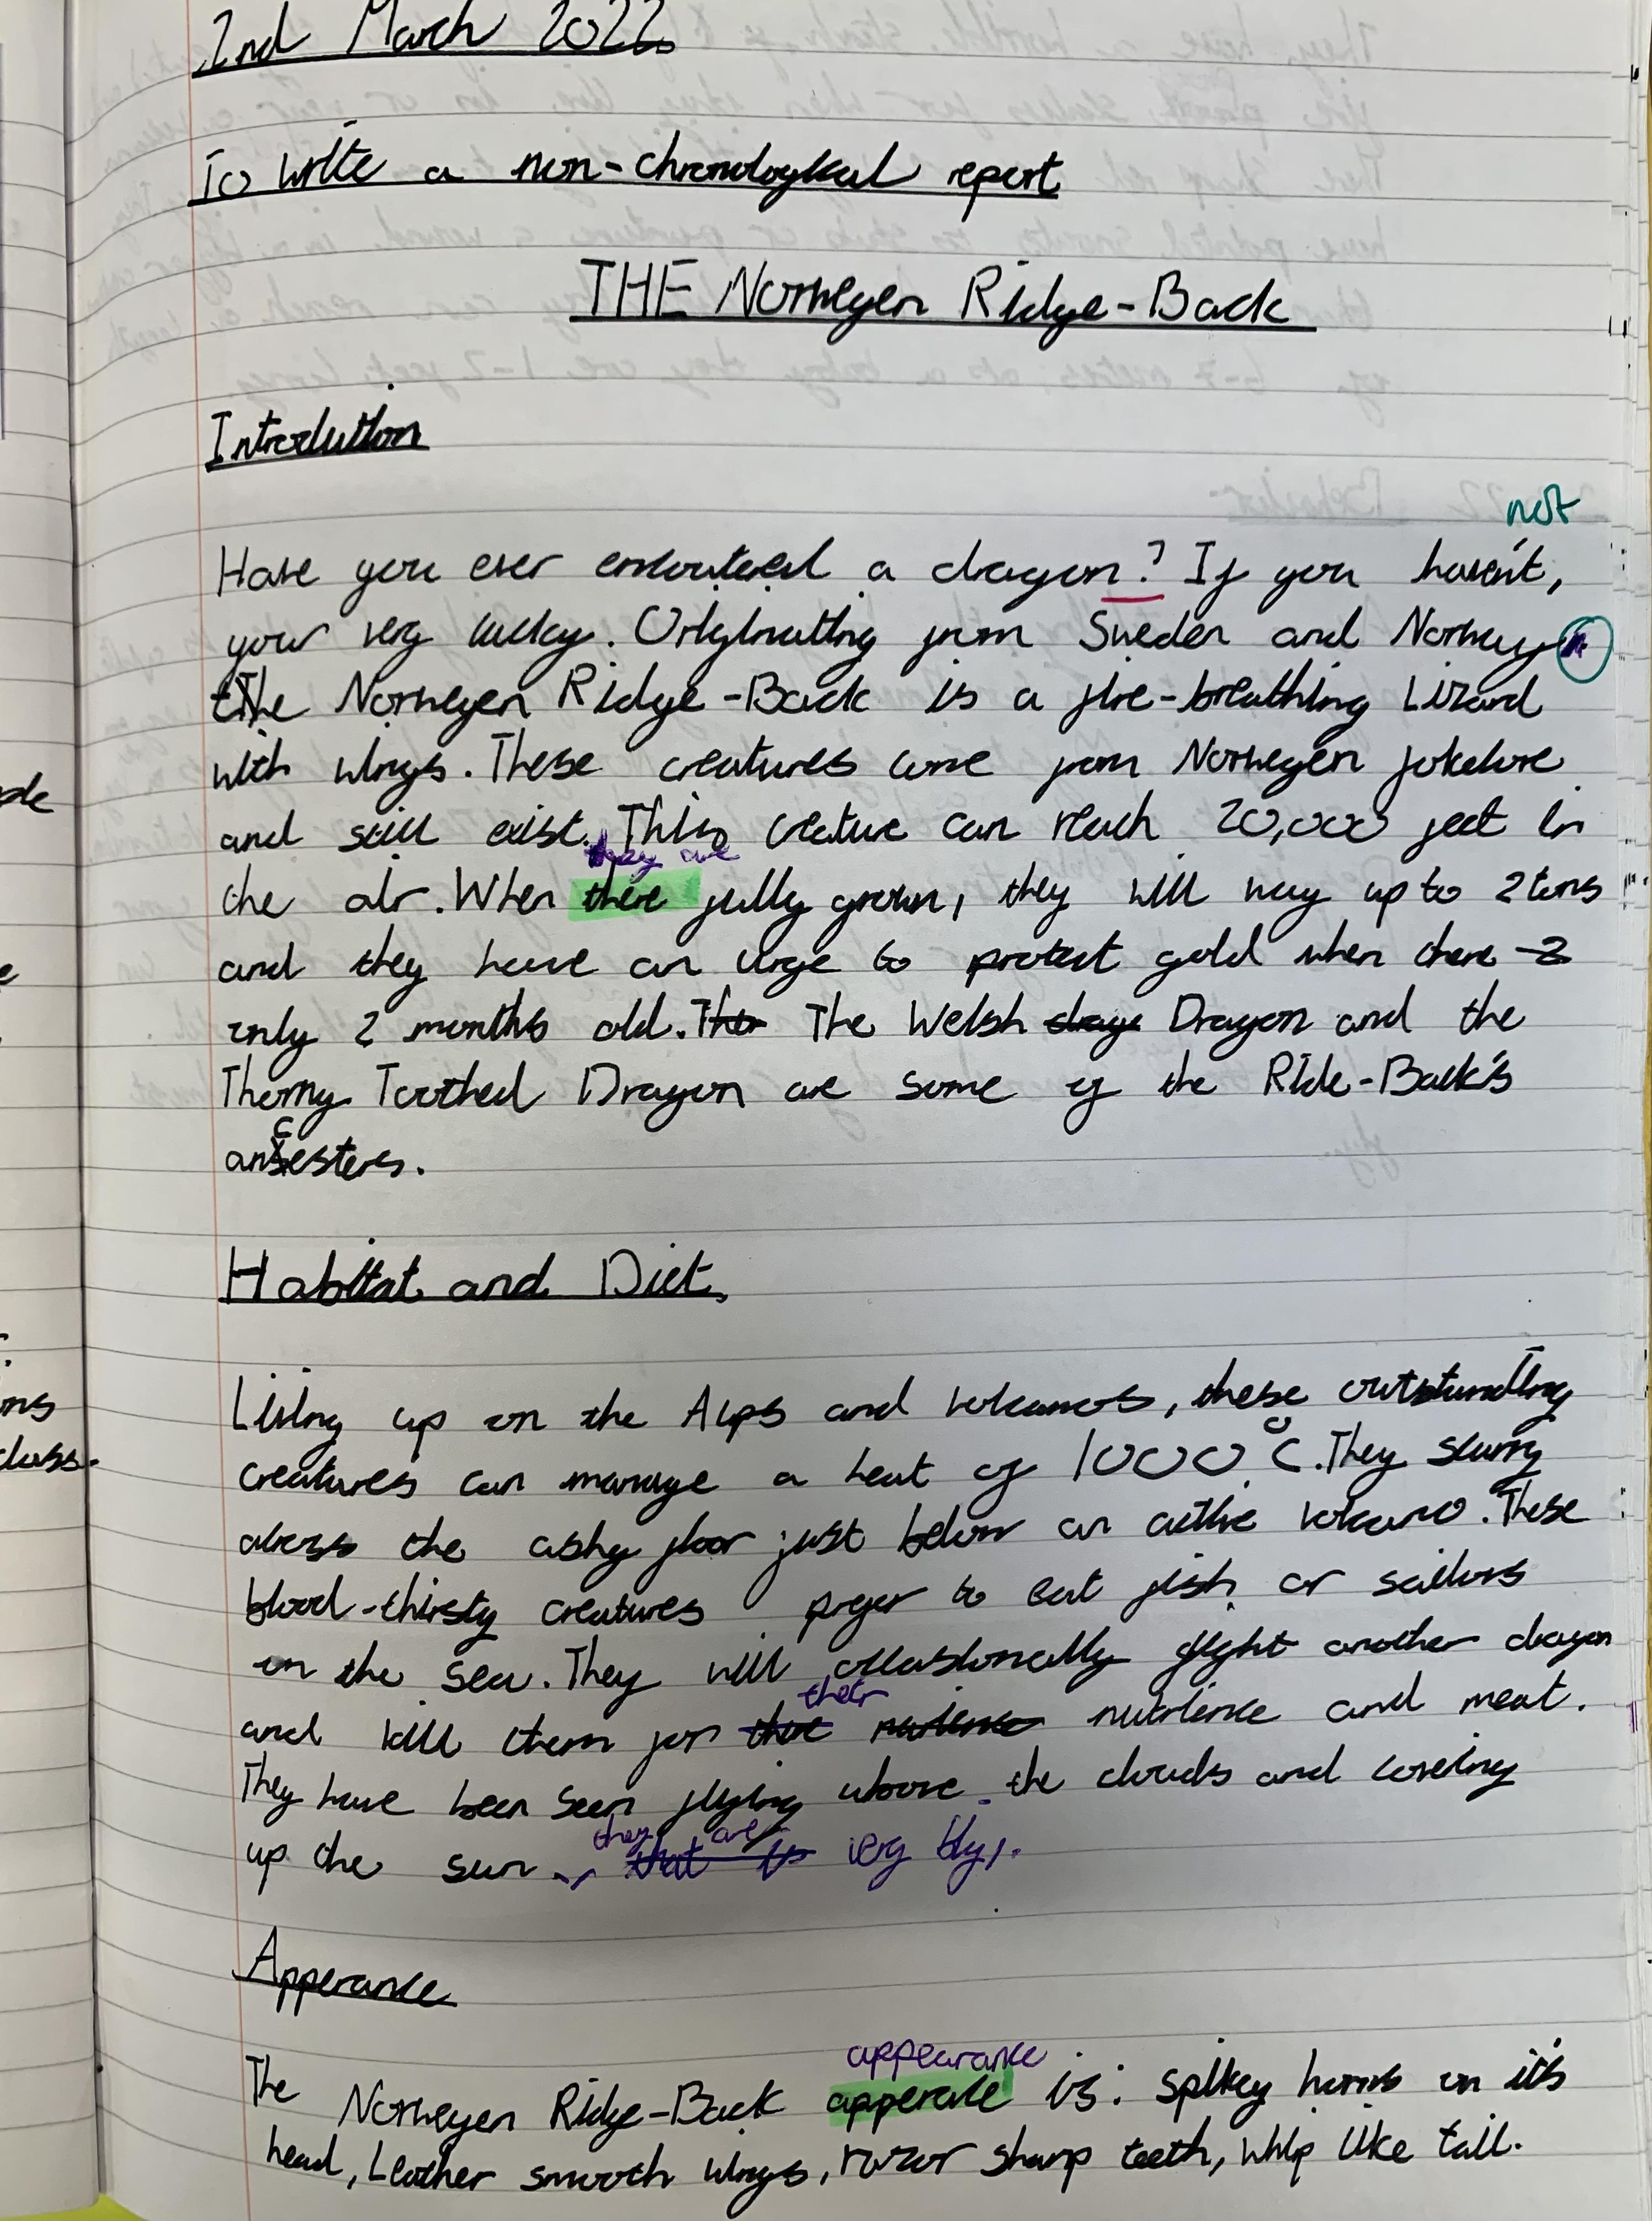 2nd March 2022
To write a non-chronological report
THE Norwegen Ridge-Back
Introdution
not
Have you ever encoutered a dragon? If you haven't,
your very lucky. Originating from Sweden and Norway
the Norwegen Ridge-Back is a fire-breathing Lizard
with wings. These creatures come from Norwegen fokelore
and still exist. This creature can reach 20,000 feet in
they are
the air. When there fully grown, they will way up to 2 tons
and they have an urge to protect gold when there
only 2 months old. The The Welsh drage Dragon and the
Thorny Toothed Dragon are some of the Ride-Back's
c
ansesters.
Habitat and Diet
Living up on the Alps and volcanos, these outstanding
creatures can manage a heat of 1000°C. They slurry
across the ashy floor just below an active volcano. These
blood-thirsty creatures prefer to eat fish or sailors
on the sea. They will occasionally fight another dragon
their
and kill them for there nutrience and meat.
They have been seen flying above the clouds and covering
they are
up the sun that is very big.
Apperance
appearance
The Norwegen Ridge-Back apperace is: spikey horns on it's
head, Leather smooth wings, razor sharp teeth, whip like tail.
ple
e
ons
class.